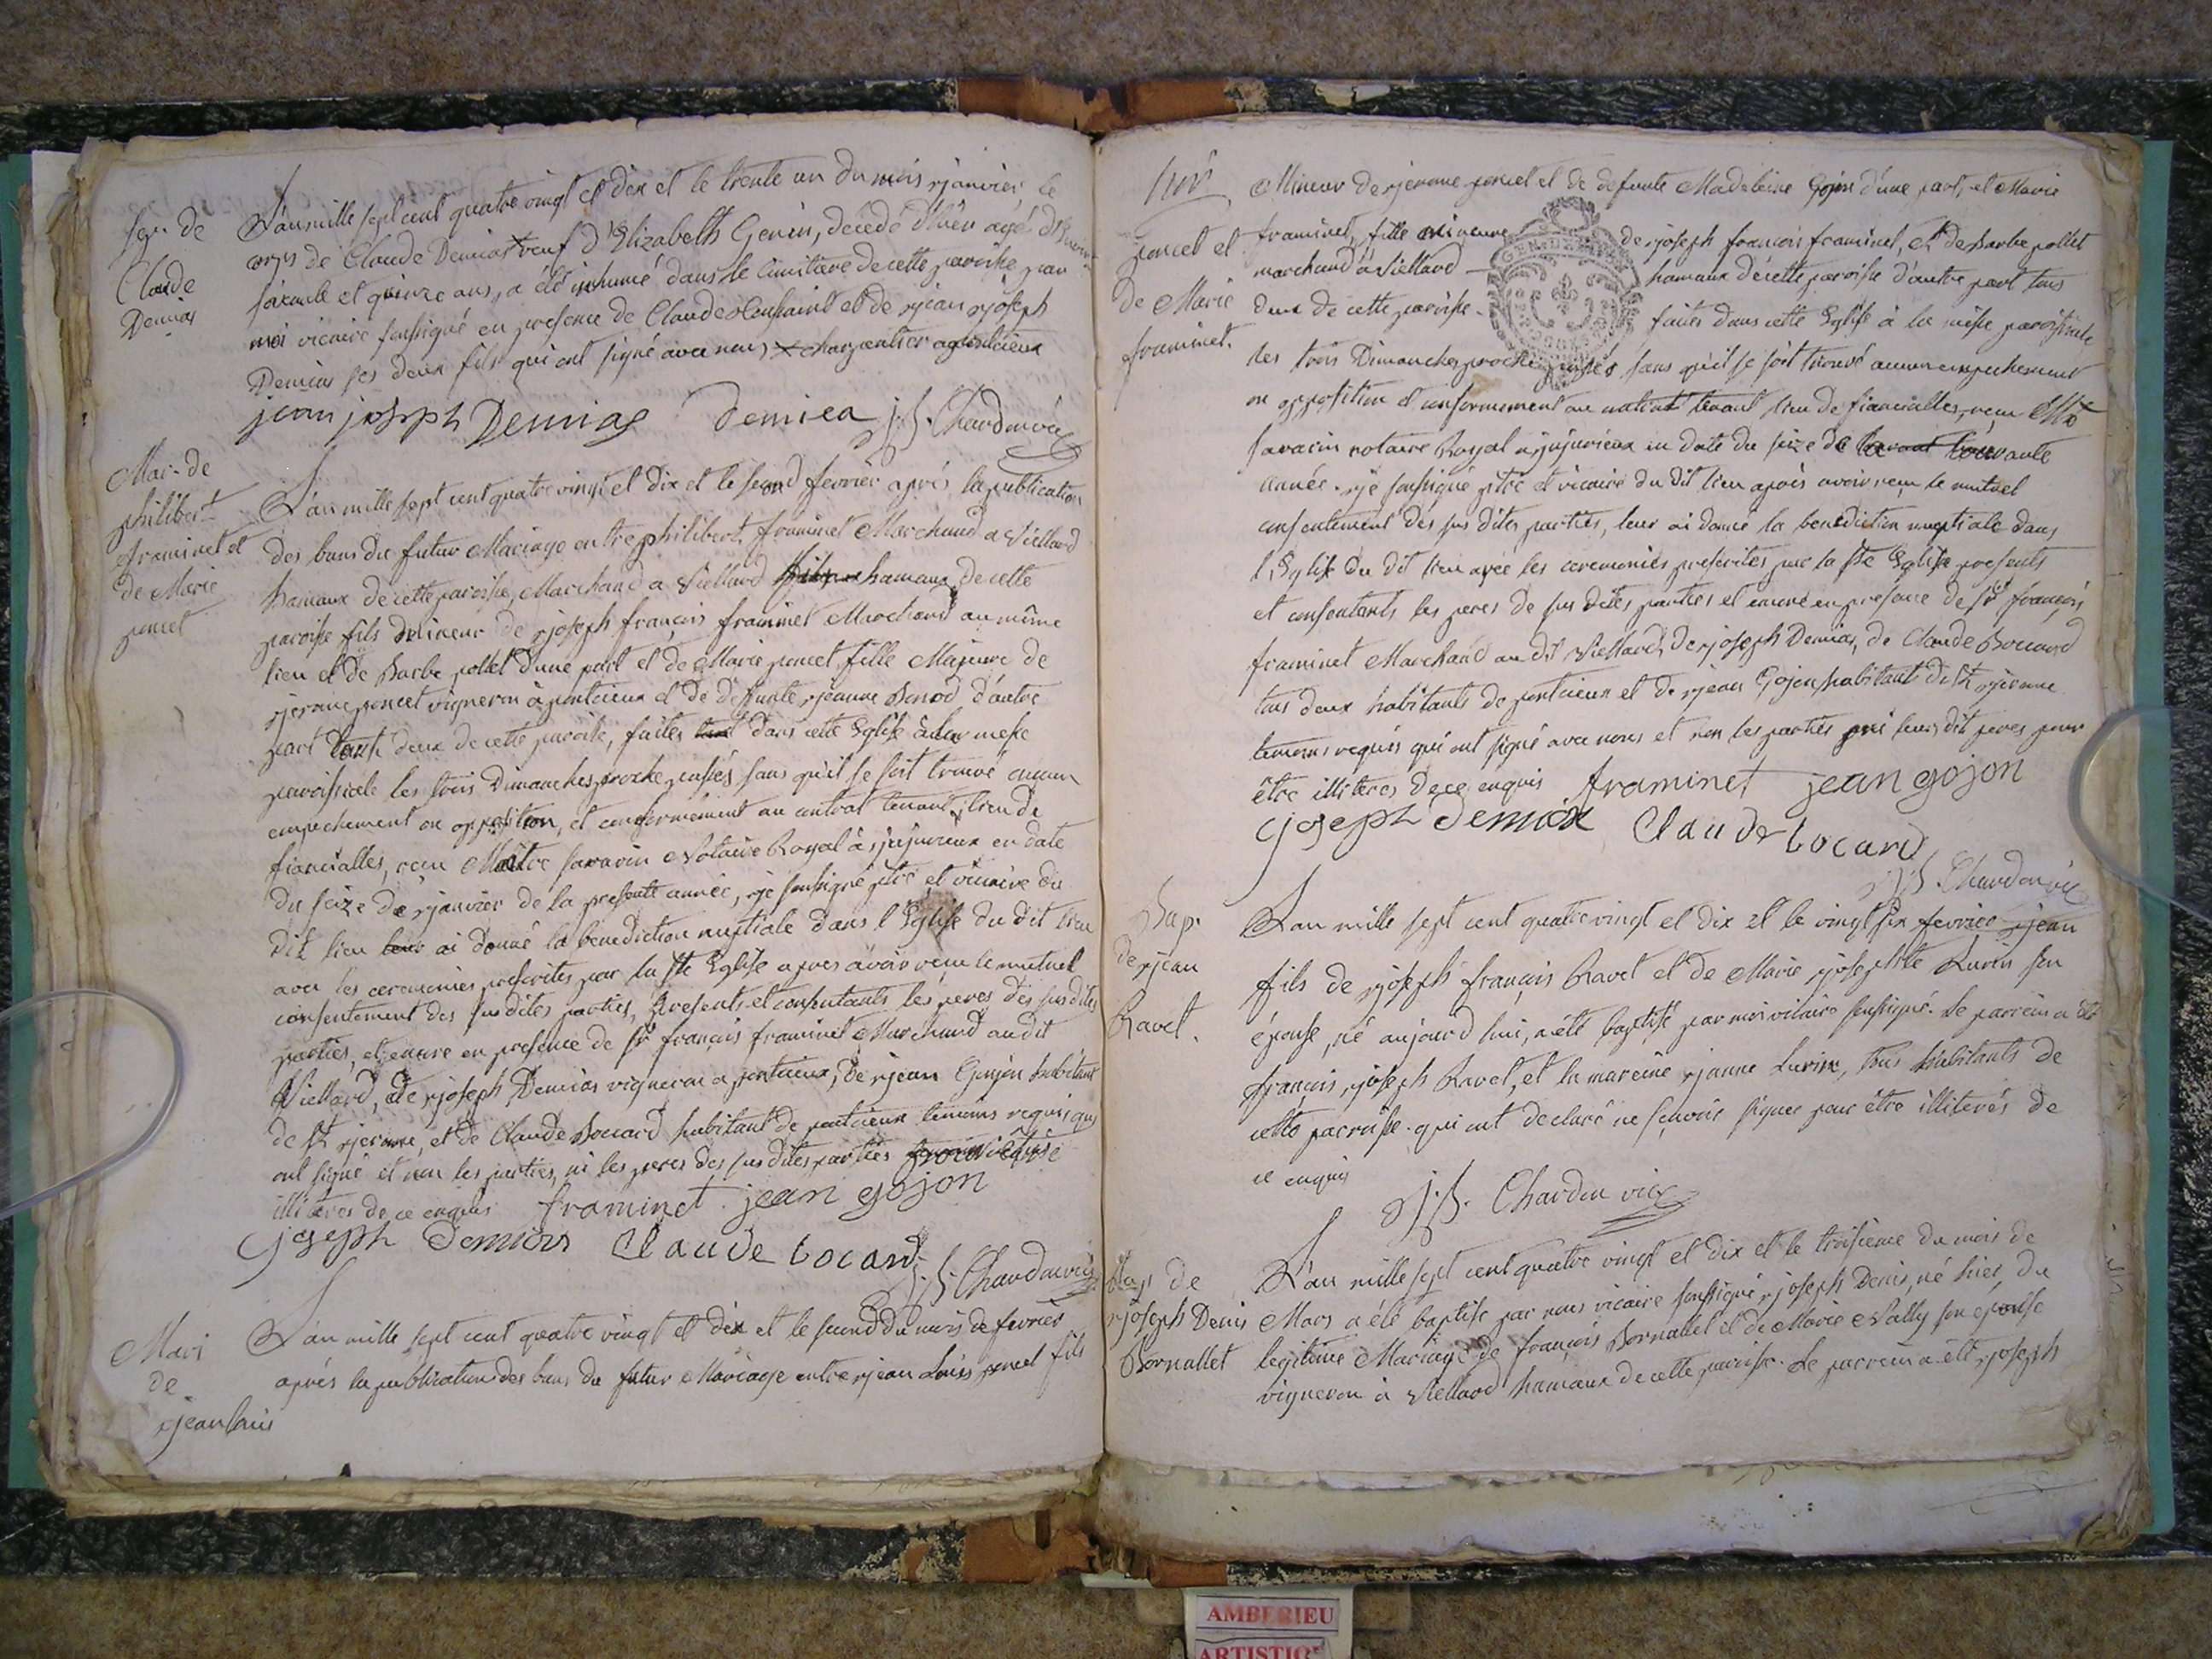 Sep. de
Claude
Demias
L'an mille sept cent quatre vingt et dix et le trente un du mois rjanvier le
corps de Claude Demias veuf d'Elizabeth Genin, décédé d'hier agé d'Environ
soixante et quinze ans, a été inhumé dans le Cimitiere de cette paroisse par
moi vicaire soussigné en presence de Claude et de rjean rjoseph
Demias ses deux fils qui ont signé avec nous, x charpentier a pontcieux
jean joseph Demias demiea J. B. Chardon vic
Mar. de
philibert
framinet et
de Marie
poncet
L'an mille sept cent quatre vingt et dix et le second fevrier après la publication
des bans du futur Mariage entre philibert framinet Marchand a Viellard
hamaux de cette paroisse, Marchand a Viellard hamaux de cette
paroisse fils Mineur de rjoseph françois framinet Marchand au même
lieu et de Barbe pollet d'une part et de Marie poncet fille Majeure de
rjerome poncet vigneron à pontcieux et de deffunte rjeanne Benod d'autre
part tous deux de cette paroise, faites dans cette Eglise à la messe
paroissiale les trois Dimanches proche passés sans qu'il se soit trouvé aucun
empechement ou opposition, et conformément au contrat tenant lieu de
fiancialles, reçu Maitre Savarin Notaire Royal à rjujurieux en date
du seize de rjanvier de la presente année, rje soussigné ptre et vicaire du
dit lieu leur ai donné la benediction nuptiale dans l'Eglise du dit lieu
avec les ceremonies prescrites par la Ste Eglise apres avoir reçu le mutuel
consentement des susdites parties, presents et consentants les peres des susdites
parties, et encore en presence de Sr françois framinet Marchand au dit
Viellard, de rjoseph Demias vigneron a pontcieux, de rjean Gojon habitant
de St rjerome, et de Claude Boccard habitant de pontcieux temoins requis qui
ont signé et non les parties, ni les peres des susdites parties
illiteres de ce enquis framinet jean gojon
joseph Demias Claude bocard
J. B. Chardon vic
Mari
de
rjean louis
L'an mille sept cent quatre vingt et dix et le second du mois de fevrier
après la publication des bans du futur Mariage entre rjean Louis poncet fils
poncet et
de Marie
framinet.
Mineur de rjerome poncet et de defunte Madeleine Gojon d'une part, et Marie
framinet, fille mineure de rjoseph françois framinet, et de barbe pollet
marchand à Viellard hamaux de cette paroisse d'autre part tous
deux de cette paroisse. faites dans cette Eglise à la messe paroissiale
les trois Dimanches proche passés sans qu'il se soit trouvé aucun empechement
ou opposition et conformement au contrat tenant lieu de fiancialles, reçu Me
Savarin notaire Royal a rjujurieux en date du seize de la courante
année. rje soussigné ptre et vicaire du dit lieu après avoir reçu le mutuel
consentement des sus dites parties, leur ai donné la benediction nuptiale dans
l'Eglise du dit lieu avec les ceremonies prescrites par la Ste Eglise presents
et consentants les peres de sus dites parties et encore en presence de Sr françois
framinet Marchand au dit Viellard, de rjoseph Demias, de Claude Boccard
tous deux habitants de pontcieux et de rjean Gojon habitant de St rjerome
temoins requis qui ont signé avec nous et non les parties ni leur dit peres pour
être illiteres de ce enquis framinet jean gojon
joseph Demias Claude bocard
J. B. Chardon vic
Bap.
de rjean
Ravet.
L'an mille sept cent quatre vingt et dix et le vingt six fevrier rjean
fils de rjoseph françois Ravet et de Marie rjosephte Lurin son
épouse, né aujourd'hui, a été baptisé par moi vicaire soussigné. Le parrein a été
françois rjoseph Ravet, et la mareine rjanne Lurin, tous habitants de
cette paroisse. qui ont declaré ne sçavoir signer pour être illiterés de
ce enquis
J. B. Chardon vic
Bap de
rjoseph Denis
Bornallet
L'an mille sept cent quatre vingt et dix et le troisieme du mois de
Mars a été baptisé par nous vicaire soussigné rjoseph Denis, né hier, du
legitime Mariage de françois Bornallet et de Marie Vally son épouse
vigneron à Viellard hamaux de cette paroisse. Le parrein a été rjoseph
AMBERIEU